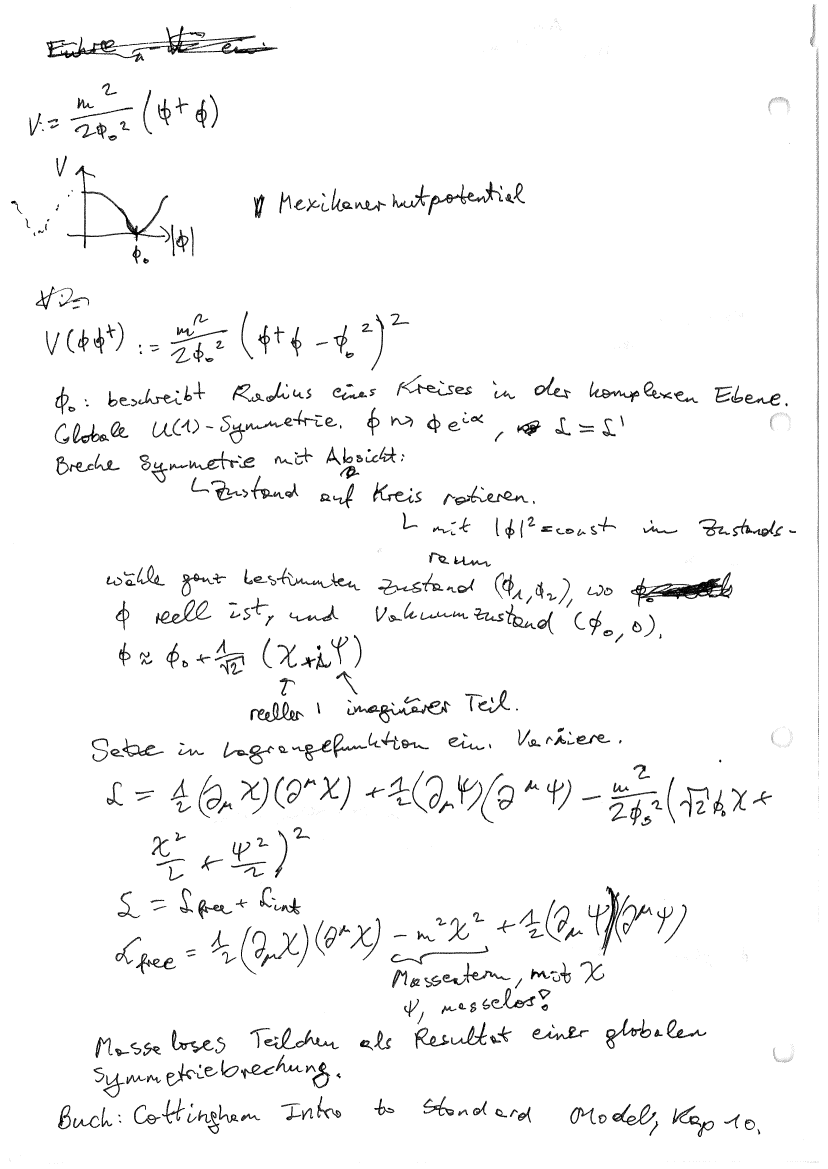 V:= m²/2ϕ₀² (ϕ⁺ϕ)
V
|ϕ|
ϕ₀
Mexikanerhutpotential
V(ϕϕ⁺) := m²/2ϕ₀² (ϕ⁺ϕ - ϕ₀²)²
ϕ₀: beschreibt Radius eines Kreises in der komplexen Ebene.
Globale U(1)-Symmetrie. ϕ ⇝ ϕe^{iα}, ℒ = ℒ'
Breche Symmetrie mit Absicht:
↳ Zustand auf Kreis rotieren.
↳ mit |ϕ|² = const im Zustands-
raum
wähle ganz bestimmten Zustand (ϕ₁,ϕ₂), wo
ϕ reell ist, und Vakuumzustand (ϕ₀, 0).
ϕ ≈ ϕ₀ + 1/√2 (χ + iψ)
↑ ↖
reeller, imaginärer Teil.
Setze in Lagrangefunktion ein. Variiere.
ℒ = 1/2 (∂_μ χ)(∂^μ χ) + 1/2 (∂_μ ψ)(∂^μ ψ) - m²/2ϕ₀² (√2 ϕ₀ χ +
χ²/2 + ψ²/2)²
ℒ = ℒfree + ℒint
ℒfree = 1/2 (∂_μ χ)(∂^μ χ) - m²χ² + 1/2 (∂_μ ψ)(∂^μ ψ)
Massenterm, mit χ
ψ, masselos!
Masseloses Teilchen als Resultat einer globalen
Symmetriebrechung.
Buch: Cottingham Intro to Standard Model, Kap 10.